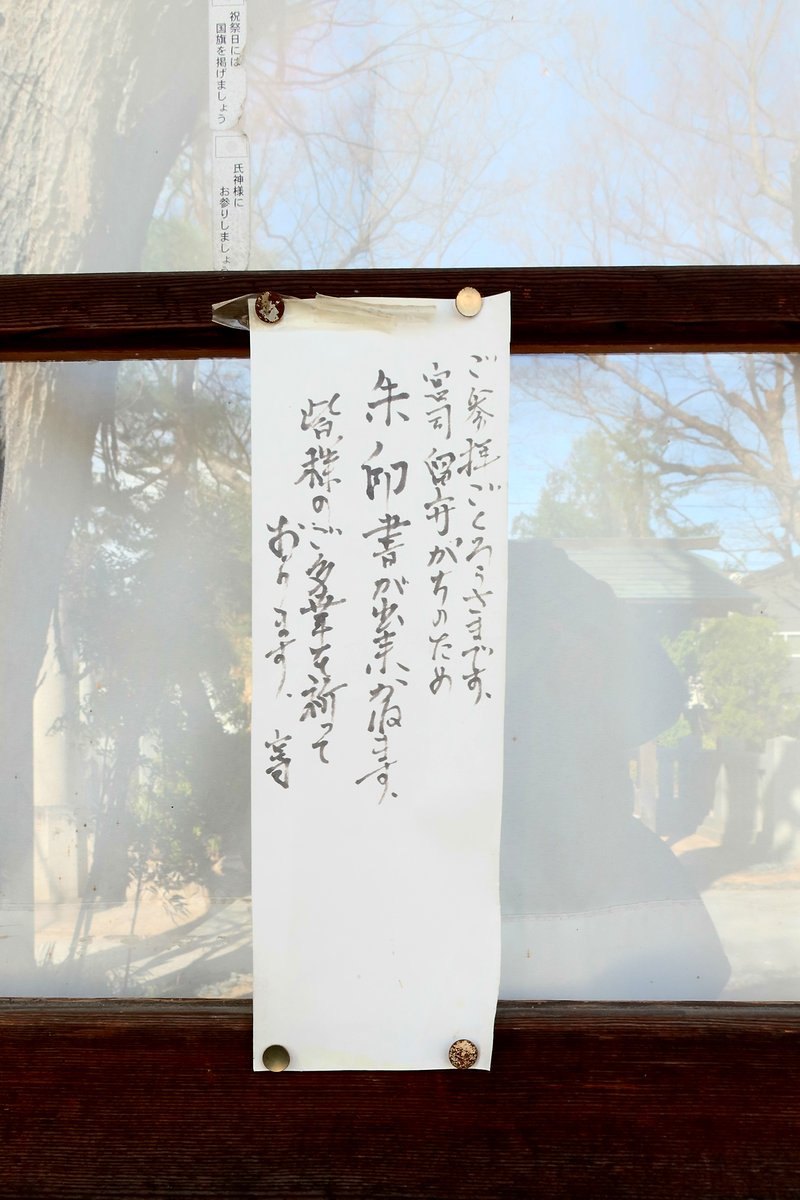 祝祭日には
国旗を掲げましょう
氏神様に
お参りしましょう
ご参拝ごくろうさまです、
宮司留守がちのため
朱印書が出来かねます、
皆様のご多幸を祈って
おります、